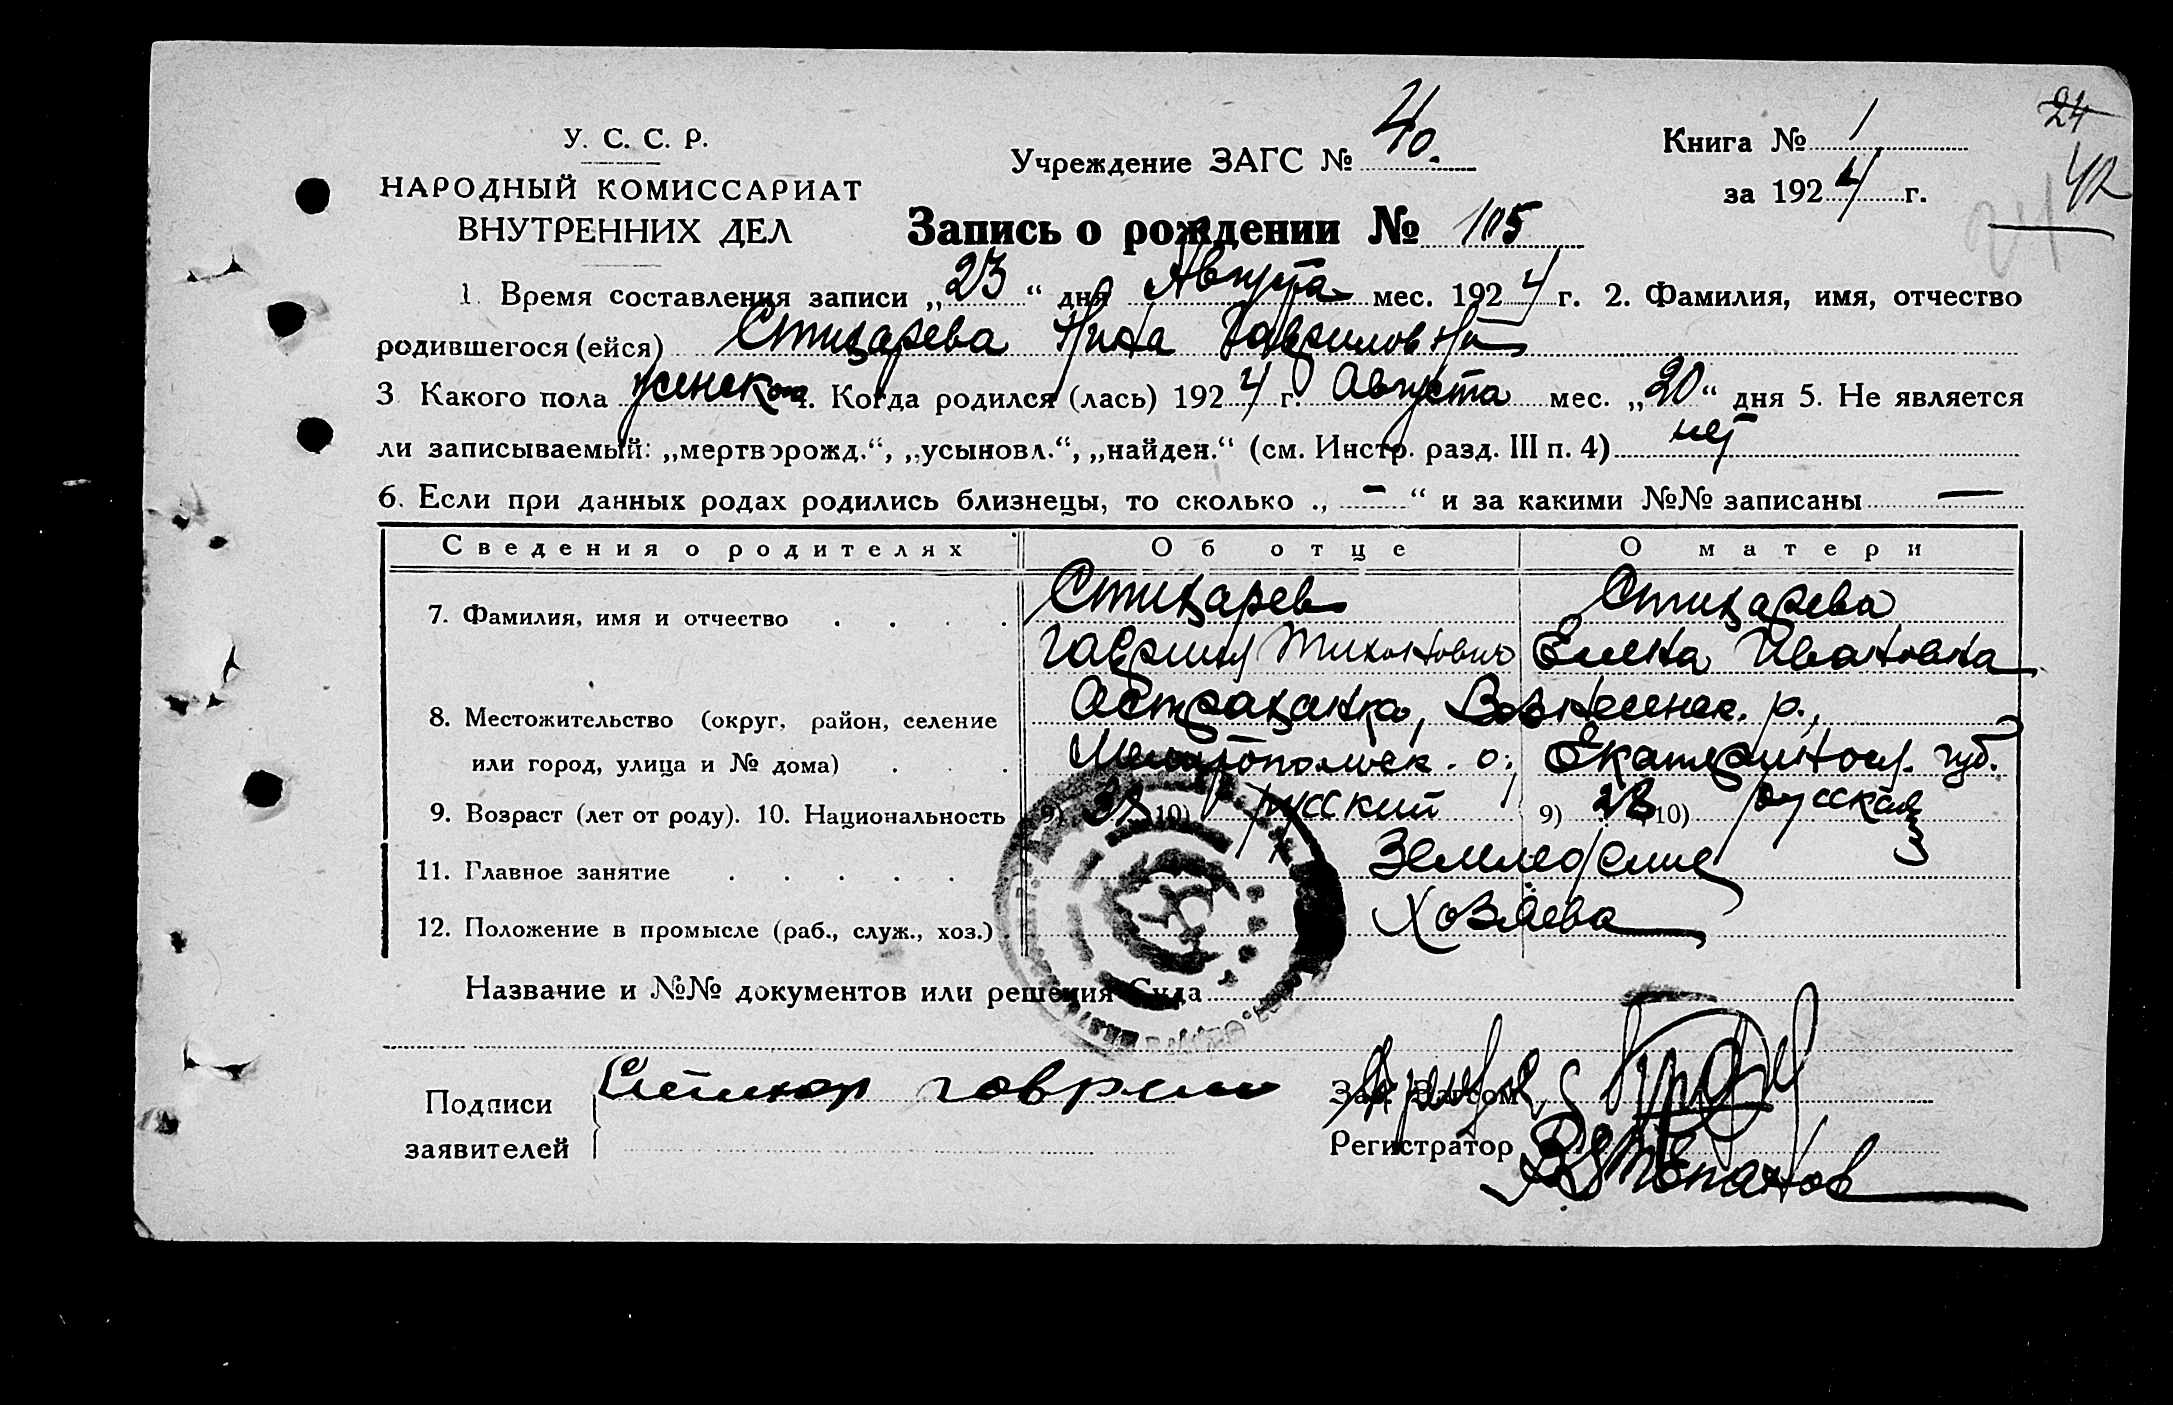 24
42
У. С. С. Р.
НАРОДНЫЙ КОМИССАРИАТ
ВНУТРЕННИХ ДЕЛ
Учреждение ЗАГС № 40.
Книга № 1
за 1924 г.
21
Запись о рождении № 105
1. Время составления записи „23“ дня Августа мес. 1924 г. 2. Фамилия, имя, отчество
родившегося (ейся) Стицарева Нина Гавриловна
3 Какого пола женск. 4. Когда родился (лась) 1924 г. Августа мес. „20“ дня 5. Не является
ли записываемый: „мертворожд.“, „усыновл.“, „найден.“ (см. Инстр. разд. III п. 4) нет
6. Если при данных родах родились близнецы, то сколько „ — “ и за какими №№ записаны —
Сведения о родителях Об отце О матери
7. Фамилия, имя и отчество Стицарев Стицарева
Гаврил Тихонович Елена Ивановна
8. Местожительство (округ, район, селение Астраханка, Вознесенск. р.,
или город, улица и № дома) Мелитопольск. о., Екатериносл. губ.
9. Возраст (лет от роду). 10. Национальность 9) 38 10) русский 9) 28 10) русская
11. Главное занятие Земледелие
12. Положение в промысле (раб., служ., хоз.) Хозяева
Название и №№ документов или решения Суда
Подписи
заявителей
Зав. Загсом
Регистратор Степанов